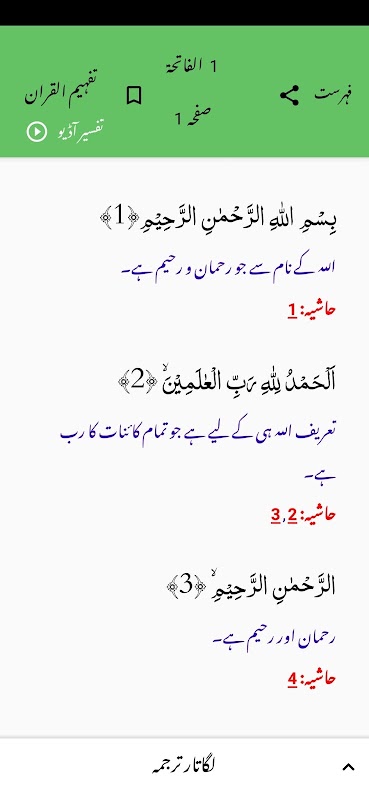 فہرست
1 الفاتحۃ
صفحہ 1
تفہیم القران
تفسیر آڈیو
بِسْمِ اللّٰهِ الرَّحْمٰنِ الرَّحِيْمِ ﴿1﴾
اللہ کے نام سے جو رحمان و رحیم ہے۔
حاشیہ: 1
اَلْحَمْدُ لِلّٰهِ رَبِّ الْعٰلَمِيْنَۙ ﴿2﴾
تعریف اللہ ہی کے لیے ہے جو تمام کائنات کا رب
ہے۔
حاشیہ: 2, 3
الرَّحْمٰنِ الرَّحِيْمِۙ ﴿3﴾
رحمان اور رحیم ہے۔
حاشیہ: 4
لگاتار ترجمہ